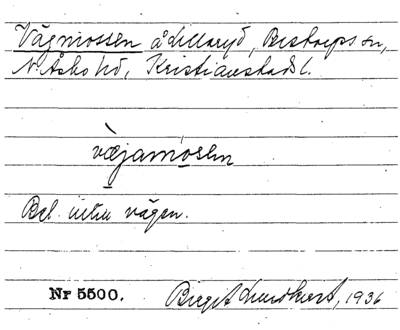 Vägmossen å Lillaryd, Bjstorps sn,
N. Åsbo hd, Kristianstads l.
væjamosen
Bel. intill vägen.
Nr 5500. Birgit Lundkvist, 1936